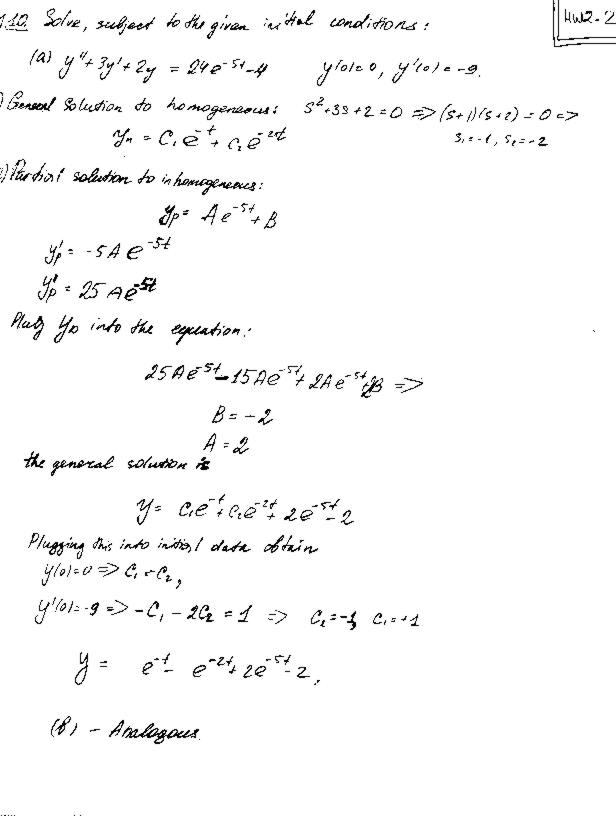 1.10. Solve, subject to the given initial conditions: HW2-2
(a) y'' + 3y' + 2y = 24e^{-5t} - 4 y(0)=0, y'(0) = -9.
) General Solution to homogeneous: s²+3s+2=0 => (s+1)(s+2)=0 =>
y_h = C₁e^{-t} + C₂e^{-2t} s₁=-1, s₂=-2
) Partial solution to inhomogeneous:
y_p = Ae^{-5t} + B
y_p' = -5Ae^{-5t}
y_p'' = 25Ae^{-5t}
Plug y_p into the equation:
25Ae^{-5t} - 15Ae^{-5t} + 2Ae^{-5t} + 2B =>
B = -2
A = 2
the general solution is
y = C₁e^{-t} + C₂e^{-2t} + 2e^{-5t} - 2
Plugging this into initial data obtain
y(0)=0 => C₁ = C₂,
y'(0)=-9 => -C₁ - 2C₂ = 1 => C₂=-1, C₁=+1
y = e^{-t} - e^{-2t} + 2e^{-5t} - 2,
(B) - Analogous.